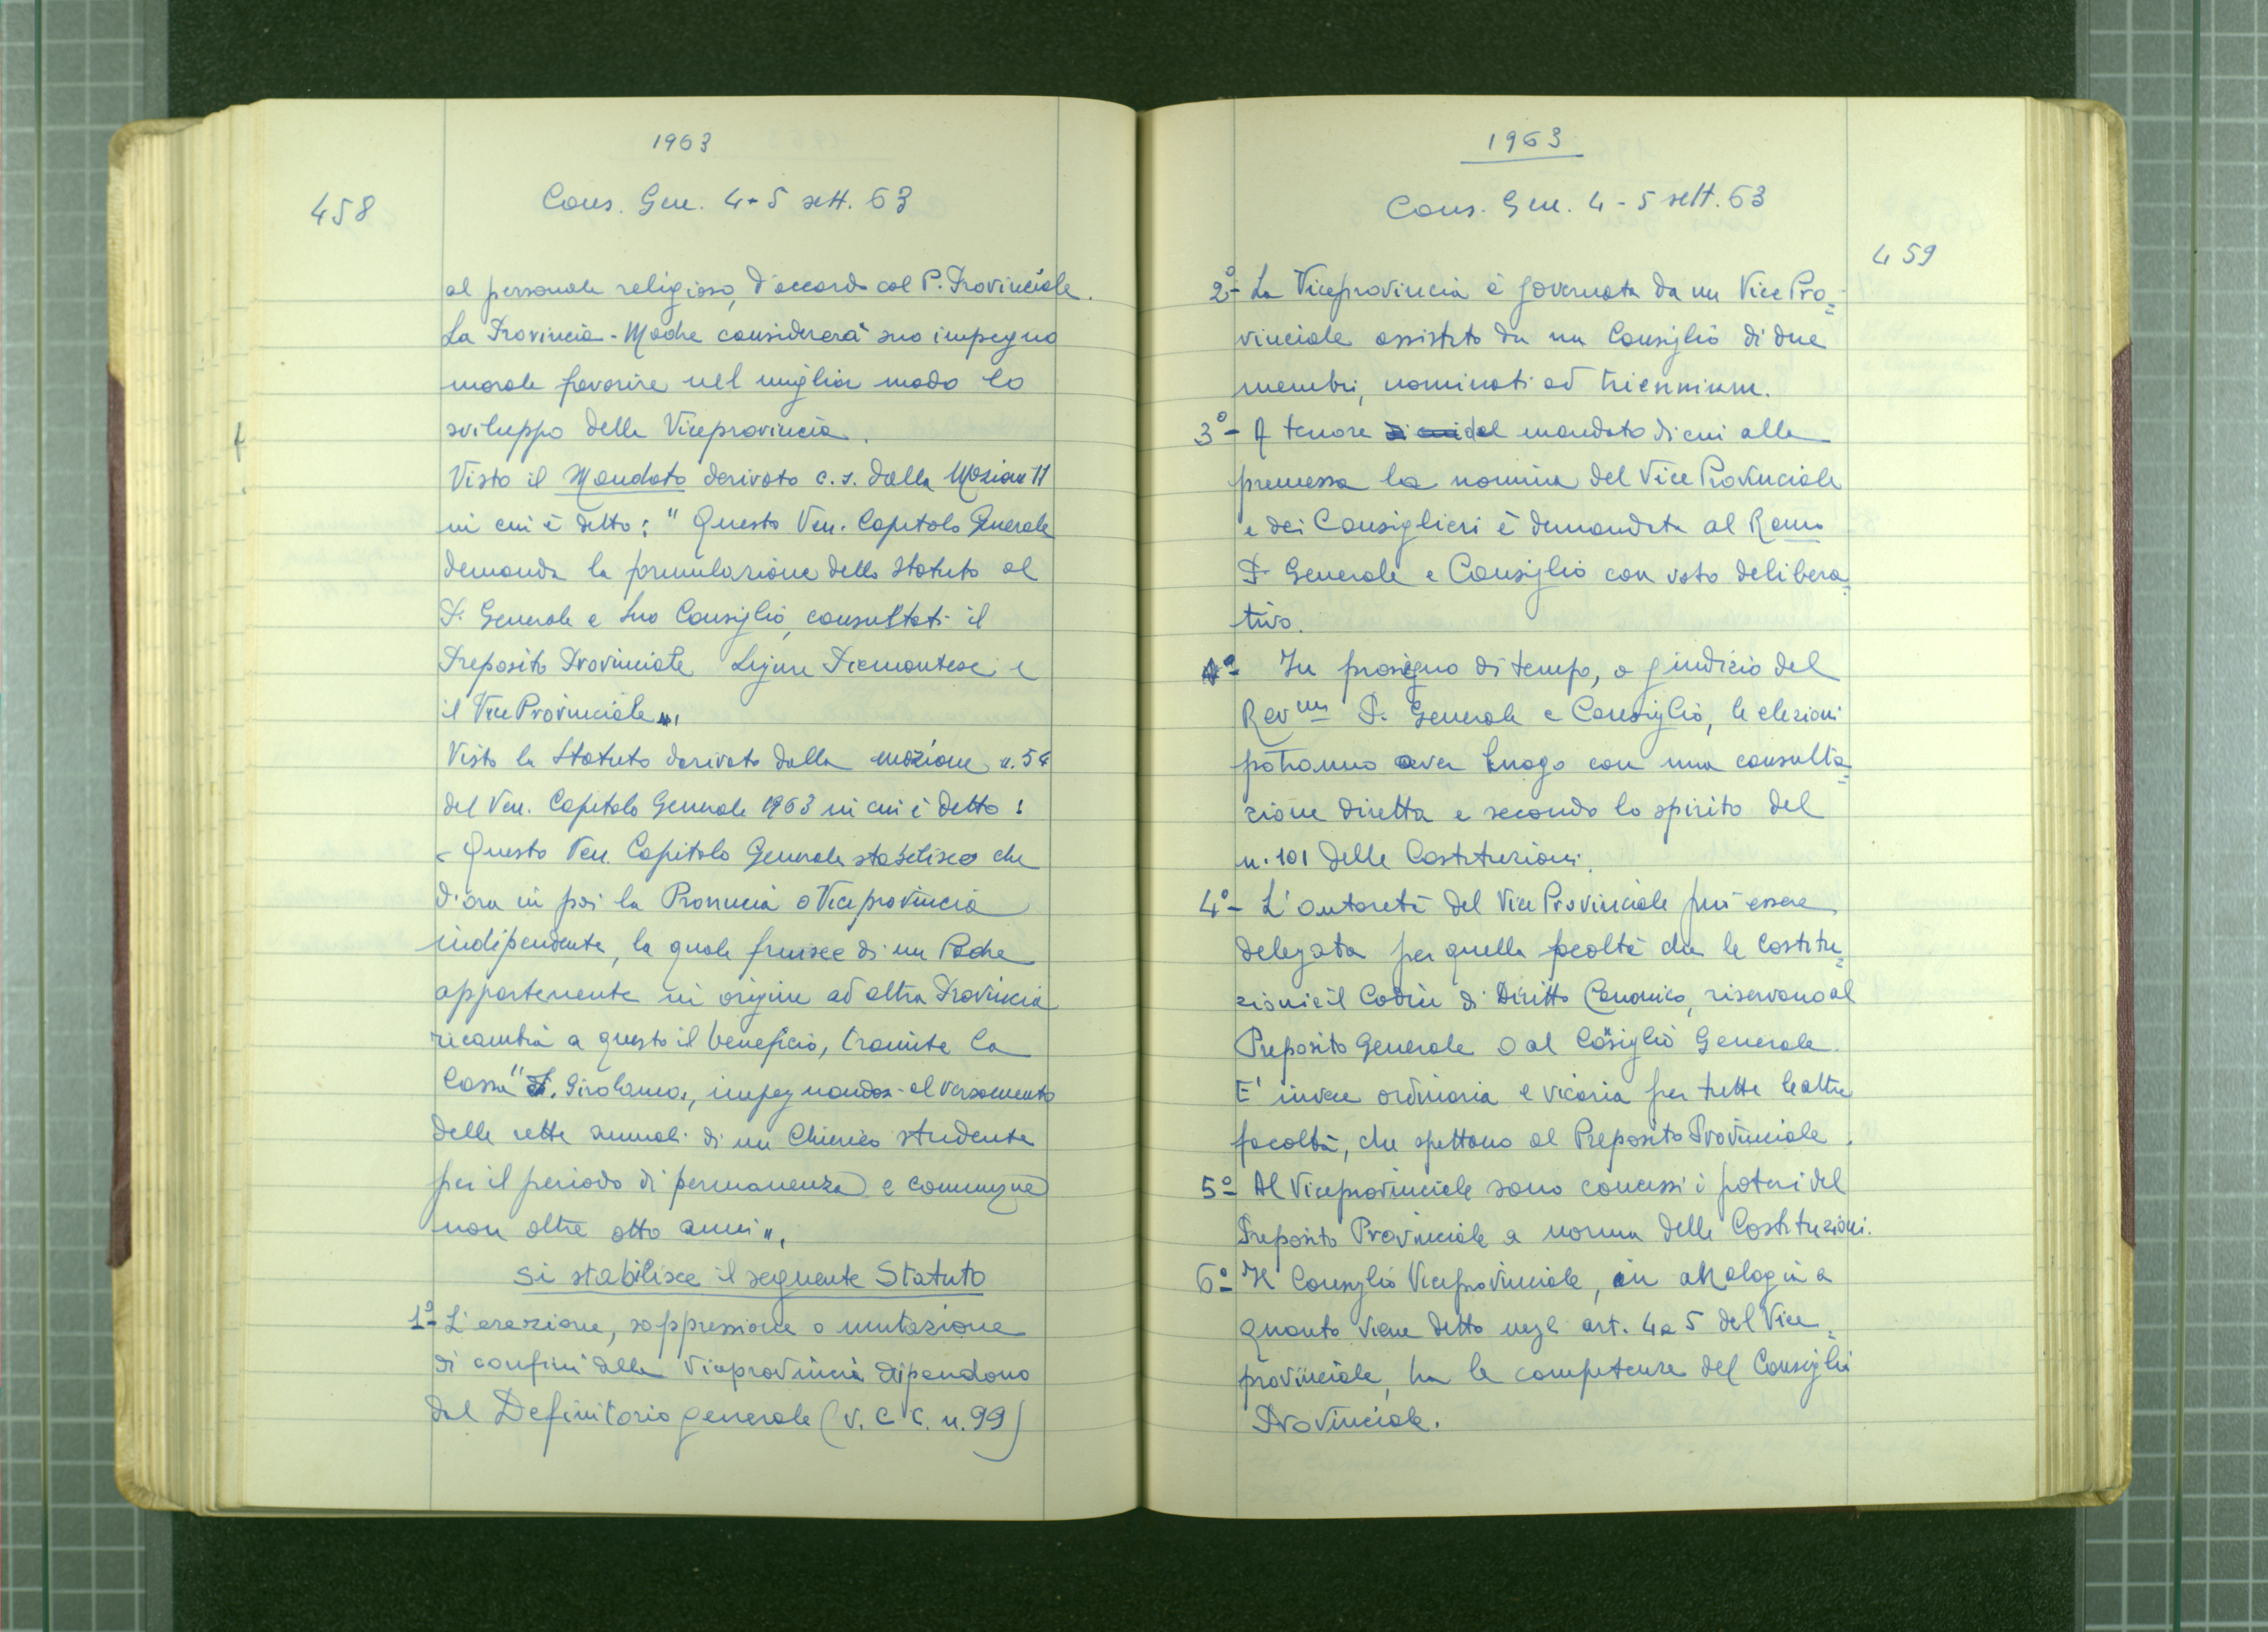 1963
458
Cons. Gen. 4-5 sett. 63
al personale religioso, d'accordo col P. Provinciale.
La Provincia-Madre considererà suo impegno
morale favorire nel miglior modo lo
sviluppo della Viceprovincia.
Visto il Mandato derivato c.s. dalla Mozione 11
in cui è detto: "Questo Ven. Capitolo Generale
demanda la formulazione dello Statuto al
P. Generale e suo Consiglio, consultati il
Preposito Provinciale Ligure Piemontese e
il Vice Provinciale".
Visto lo Statuto derivato dalla mozione n. 54
del Ven. Capitolo Generale 1963 in cui è detto:
"Questo Ven. Capitolo Generale stabilisce che
d'ora in poi la Provincia o Viceprovincia
indipendente, la quale fruisce di un Padre
appartenente in origine ad altra Provincia
ricambia a questo il beneficio, tramite la
Cassa "S. Girolamo", impegnandosi al versamento
delle rette annuali di un Chierico studente
per il periodo di permanenza e comunque
non oltre otto anni".
Si stabilisce il seguente Statuto
1º- L'erezione, soppressione o mutazione
di confini della Viceprovincia dipendono
dal Definitorio generale (v. C C. n. 99)
1963
Cons. Gen. 4-5 sett. 63
459
2º- La Viceprovincia è governata da un Vice Pro=
vinciale assistito da un Consiglio di due
membri, nominati ad triennium.
3º- A tenore di cui del mandato di cui alla
premessa la nomina del Vice Provinciale
e dei Consiglieri è demandata al Rev.mo
P. Generale e Consiglio con voto delibera=
tivo.
In prosieguo di tempo, a giudizio del
Rev.mo P. Generale e Consiglio, le elezioni
potranno aver luogo con una consulta=
zione diretta e secondo lo spirito del
n. 101 delle Costituzioni.
4º- L'autorità del Vice Provinciale può essere
delegata per quelle facoltà che le Costitu=
zioni e il Codice di Diritto Canonico, riservano al
Preposito Generale o al Consiglio Generale.
E' invece ordinaria e vicaria per tutte le altre
facoltà, che spettano al Preposito Provinciale.
5º- Al Viceprovinciale sono concessi i poteri del
Preposito Provinciale a norma delle Costituzioni.
6º- Il Consiglio Viceprovinciale, in analogia a
quanto viene detto negli art. 4 e 5 del Vice=
provinciale, ha le competenze del Consiglio
Provinciale.